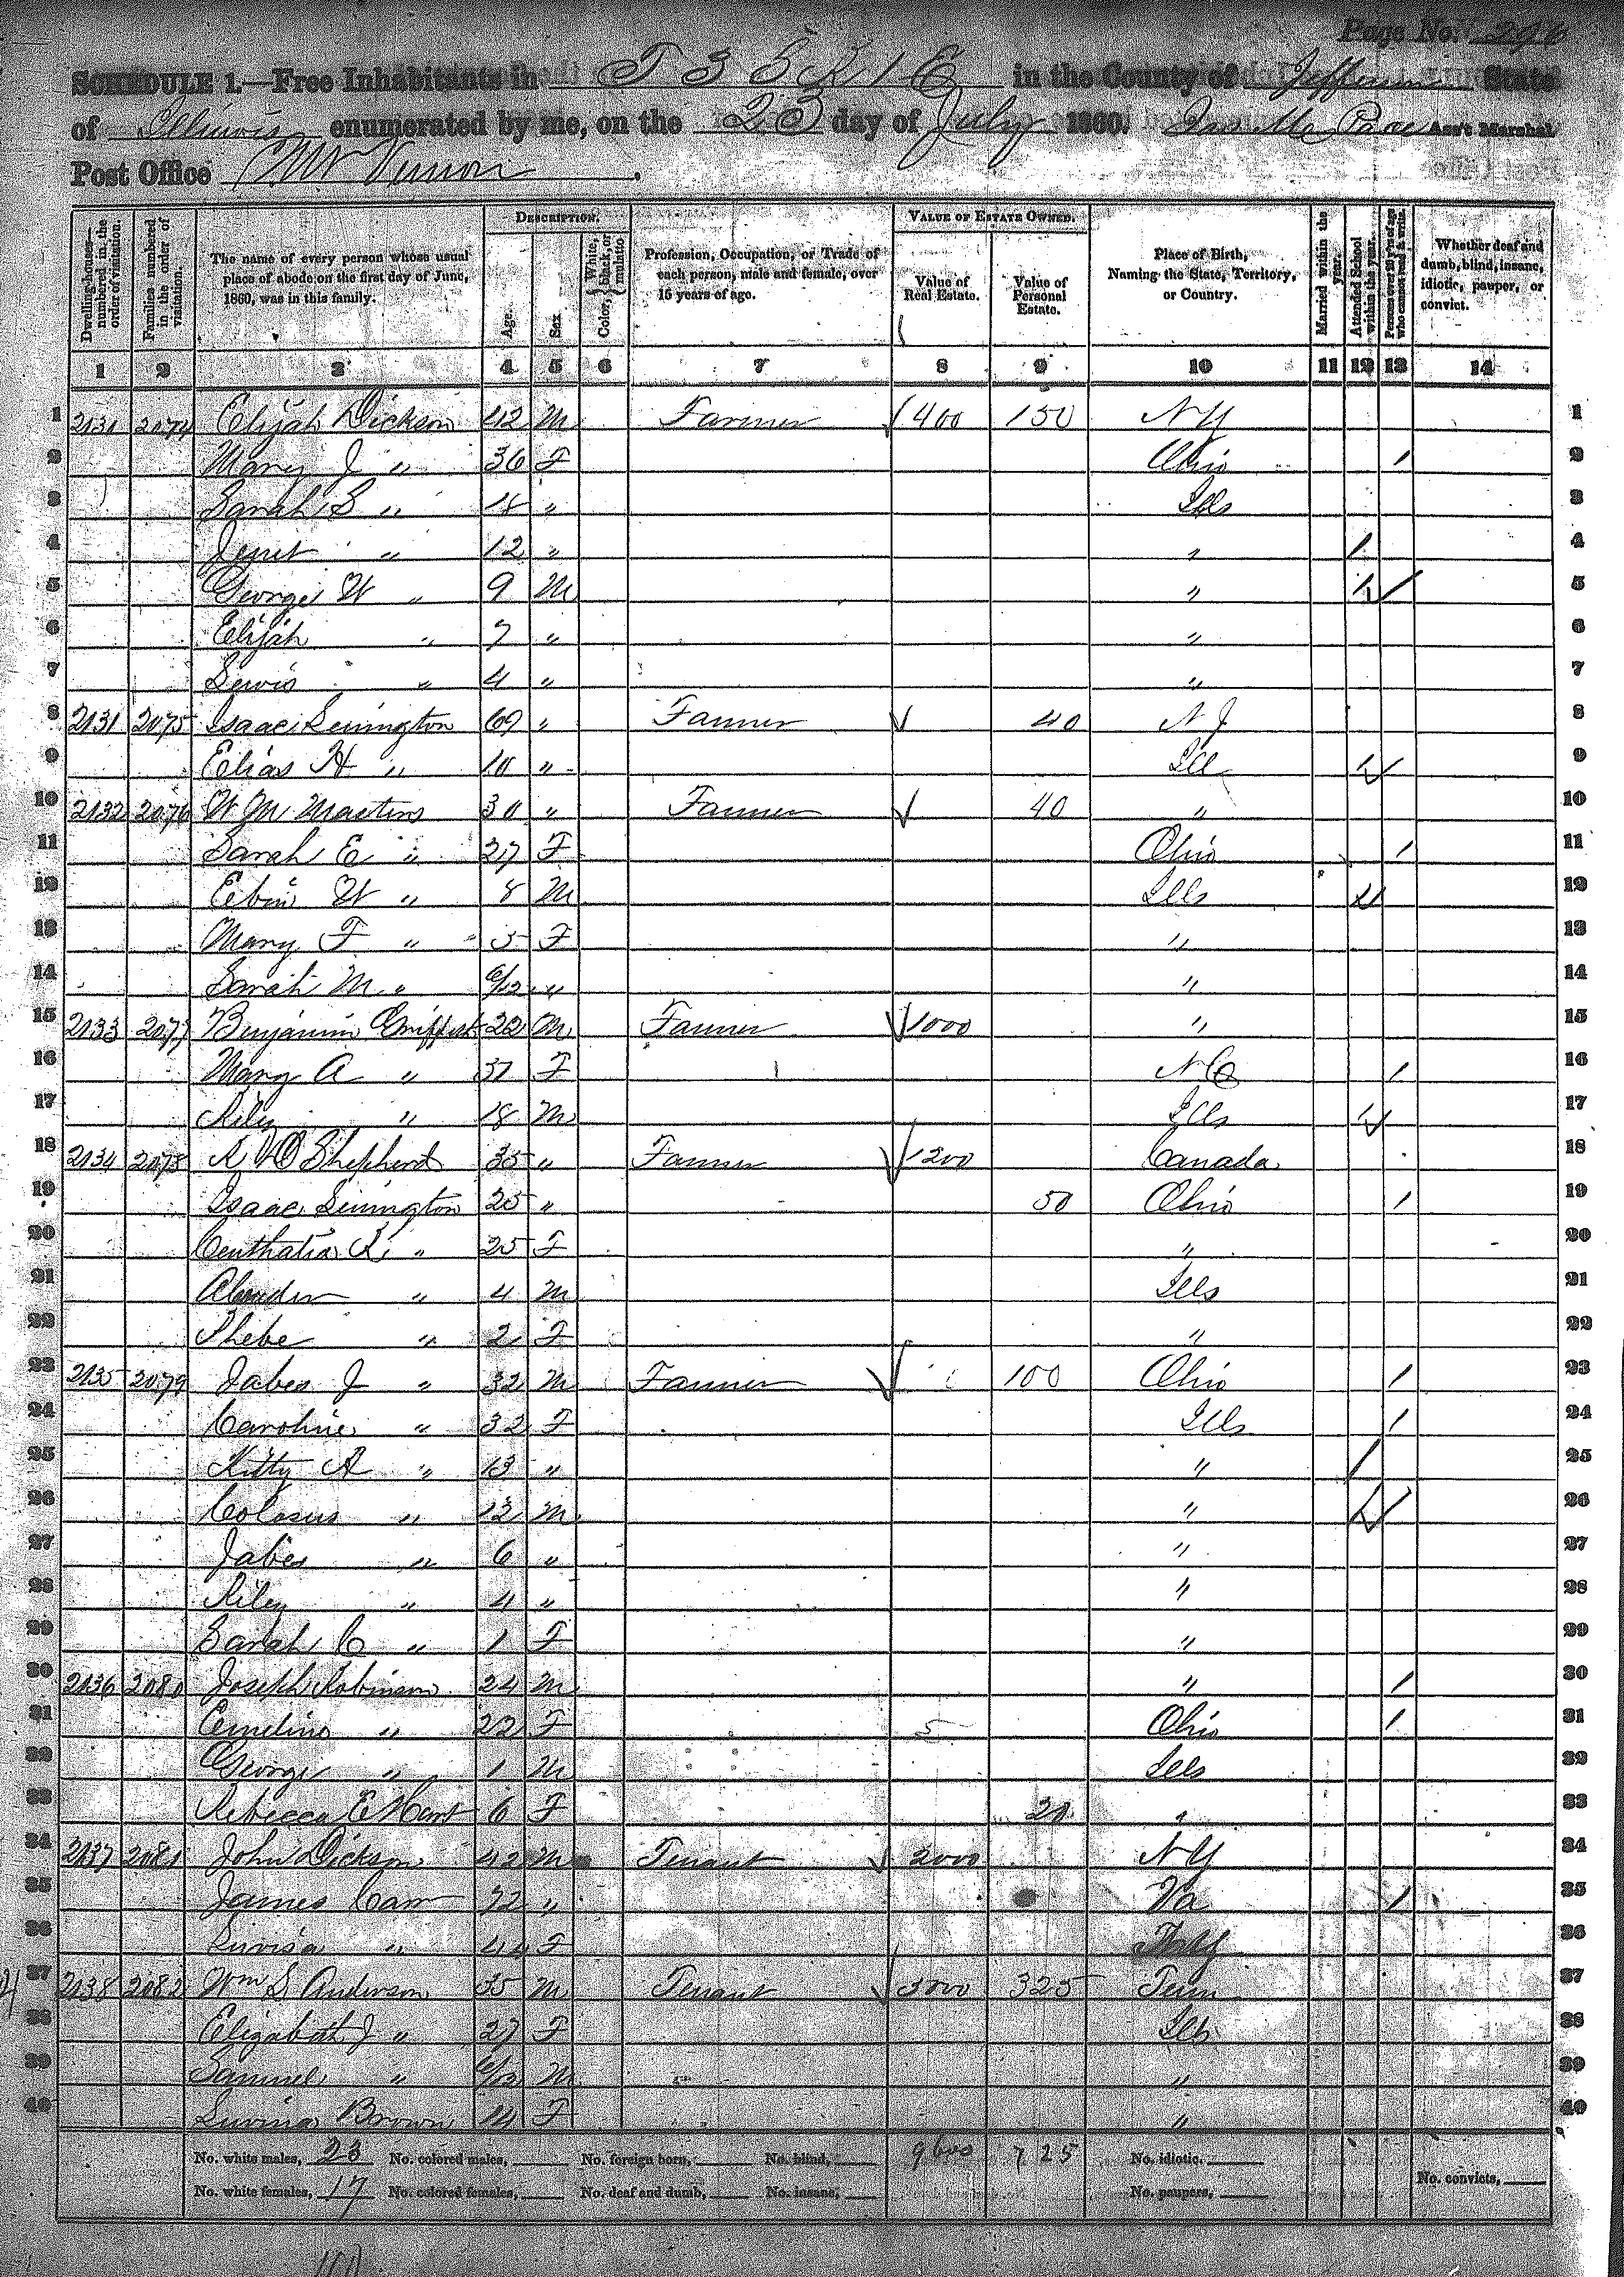 Page No. 296
SCHEDULE 1.—Free Inhabitants in T 3 S R 1 E in the County of Jefferson State
of Illinois enumerated by me, on the 23 day of July 1860. Jno M Pace Ass't Marshal.
Post Office Mt Vernon.
Dwelling-houses—numbered in the order of visitation. Families numbered in the order of visitation. The name of every person whose usual place of abode on the first day of June, 1860, was in this family. DESCRIPTION. Age. Sex Color, White, black, or mulatto Profession, Occupation, or Trade of each person, male and female, over 15 years of age. VALUE OF ESTATE OWNED. Value of Real Estate. Value of Personal Estate. Place of Birth, Naming the State, Territory, or Country. Married within the year. Attended School within the year. Persons over 20 y'rs of age who cannot read & write. Whether deaf and dumb, blind, insane, idiotic, pauper, or convict.
1 2 3 4 5 6 7 8 9 10 11 12 13 14
1 2131 2074 Elijah Dickson 42 M Farmer 400 150 N Y 1
2 Mary J " 36 F Ohio / 2
3 Sarah S " 18 " Ills 3
4 " 12 " " / 4
5 George W " 9 M " / 5
6 Elijah " 7 " " 6
7 Lewis " 4 " " 7
8 2131 2075 Isaac Livington 69 " Farmer 40 N J 8
9 Elias H " 10 " Ill / 9
10 2132 2076 W M Martin 30 " Farmer 40 " 10
11 Sarah E " 27 F Ohio / 11
12 W " 8 M Ills / 12
13 Mary F " 5 F " 13
14 Sarah M " 6/12 " " 14
15 2133 2077 Benjamin 22 M Farmer 1000 " 15
16 Mary A " 37 F N C / 16
17 Riley " 18 M Ills / 17
18 2134 2078 Shepherd 35 " Farmer 1200 Canada 18
19 Isaac Livington 25 " 50 Ohio / 19
20 " 25 F " 20
21 " 4 M Ills 21
22 Phebe " 2 F " 22
23 2135 2079 Jabes J " 32 M Farmer 100 Ohio / 23
24 Caroline " 32 F Ills / 24
25 Kitty A " 13 " " / 25
26 Colasus " 12 M " / 26
27 Jabes " 6 " " 27
28 Riley " 4 " " 28
29 Sarah C " 1 F " 29
30 2136 2080 Joseph Robinson 24 M " / 30
31 Emeline " 22 F Ohio / 31
32 George " 1 M Ills 32
33 Rebecca E 6 F 20 " 33
34 2137 2081 John Dickson 42 M Tenant 2000 N Y 34
35 James Cam 72 " Va / 35
36 Luvisa " 44 F 36
37 2138 2082 Wm S Anderson 35 M Tenant 5000 325 Tenn 37
38 Elizabeth J " 27 F Ills 38
39 Samuel " 6/12 M " 39
40 Luvina Brown 14 F " 40
No. white males, 23 No. colored males, No. foreign born, No. blind, 9600 725 No. idiotic.
No. white females, 17 No. colored females, No. deaf and dumb, No. insane, No. paupers, No. convicts,